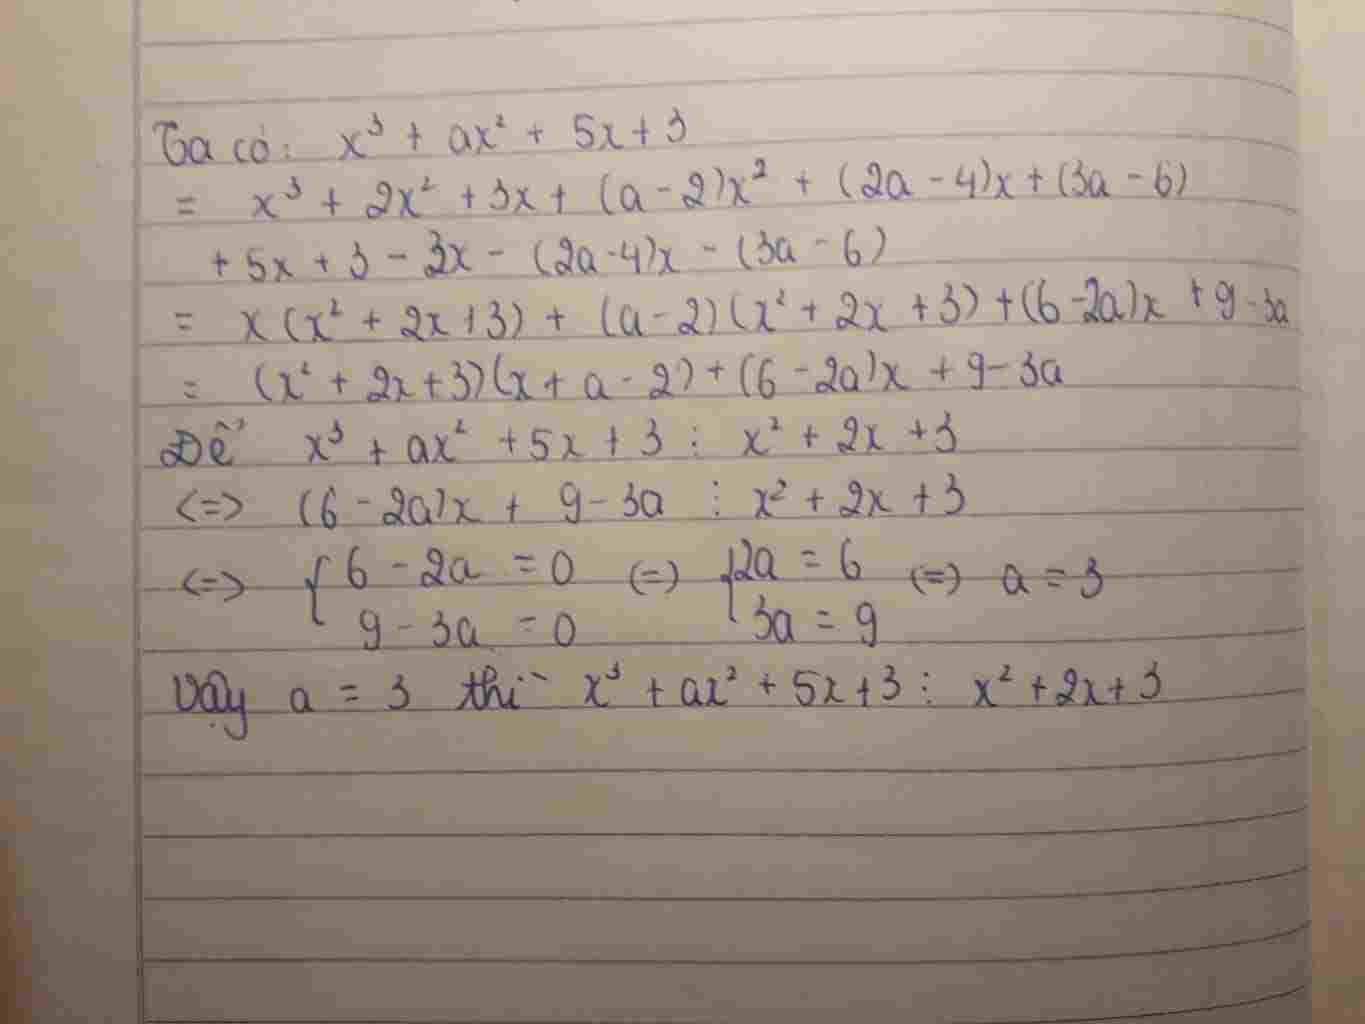 Ta có: x³ + ax² + 5x + 3
= x³ + 2x² + 3x + (a - 2)x² + (2a - 4)x + (3a - 6)
+ 5x + 3 - 3x - (2a - 4)x - (3a - 6)
= x(x² + 2x + 3) + (a - 2)(x² + 2x + 3) + (6 - 2a)x + 9 - 3a
= (x² + 2x + 3)(x + a - 2) + (6 - 2a)x + 9 - 3a
Để x³ + ax² + 5x + 3 ⋮ x² + 2x + 3
<=> (6 - 2a)x + 9 - 3a ⋮ x² + 2x + 3
<=> { 6 - 2a = 0 (=) { 2a = 6 (=) a = 3
9 - 3a = 0 3a = 9
Vậy a = 3 thì x³ + ax² + 5x + 3 ⋮ x² + 2x + 3